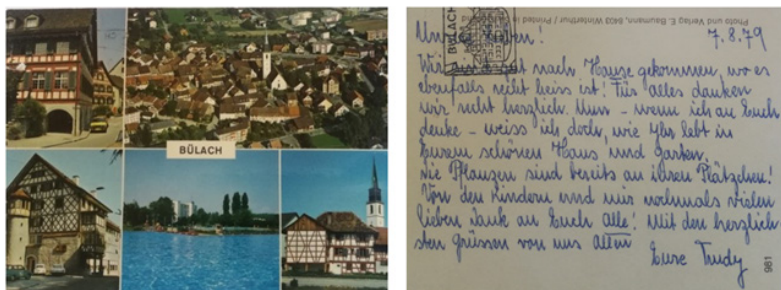 BÜLACH
Photo und Verlag E. Baumann, 8403 Winterthur / Printed in
BÜLACH
7.8.79
Wir sind gut nach Hause gekommen, wo es
ebenfalls recht heiss ist! Für alles danken
wir recht herzlich. Nun – wenn ich an Euch
denke – weiss ich doch, wie Ihr lebt in
Eurem schönen Haus, und Garten.
Die Pflanzen sind bereits an ihren Plätzchen!
Von den Kindern und mir nochmals vielen
lieben Dank an Euch alle! Mit den herzlich
sten Grüssen von uns allen
Eure Trudy
981